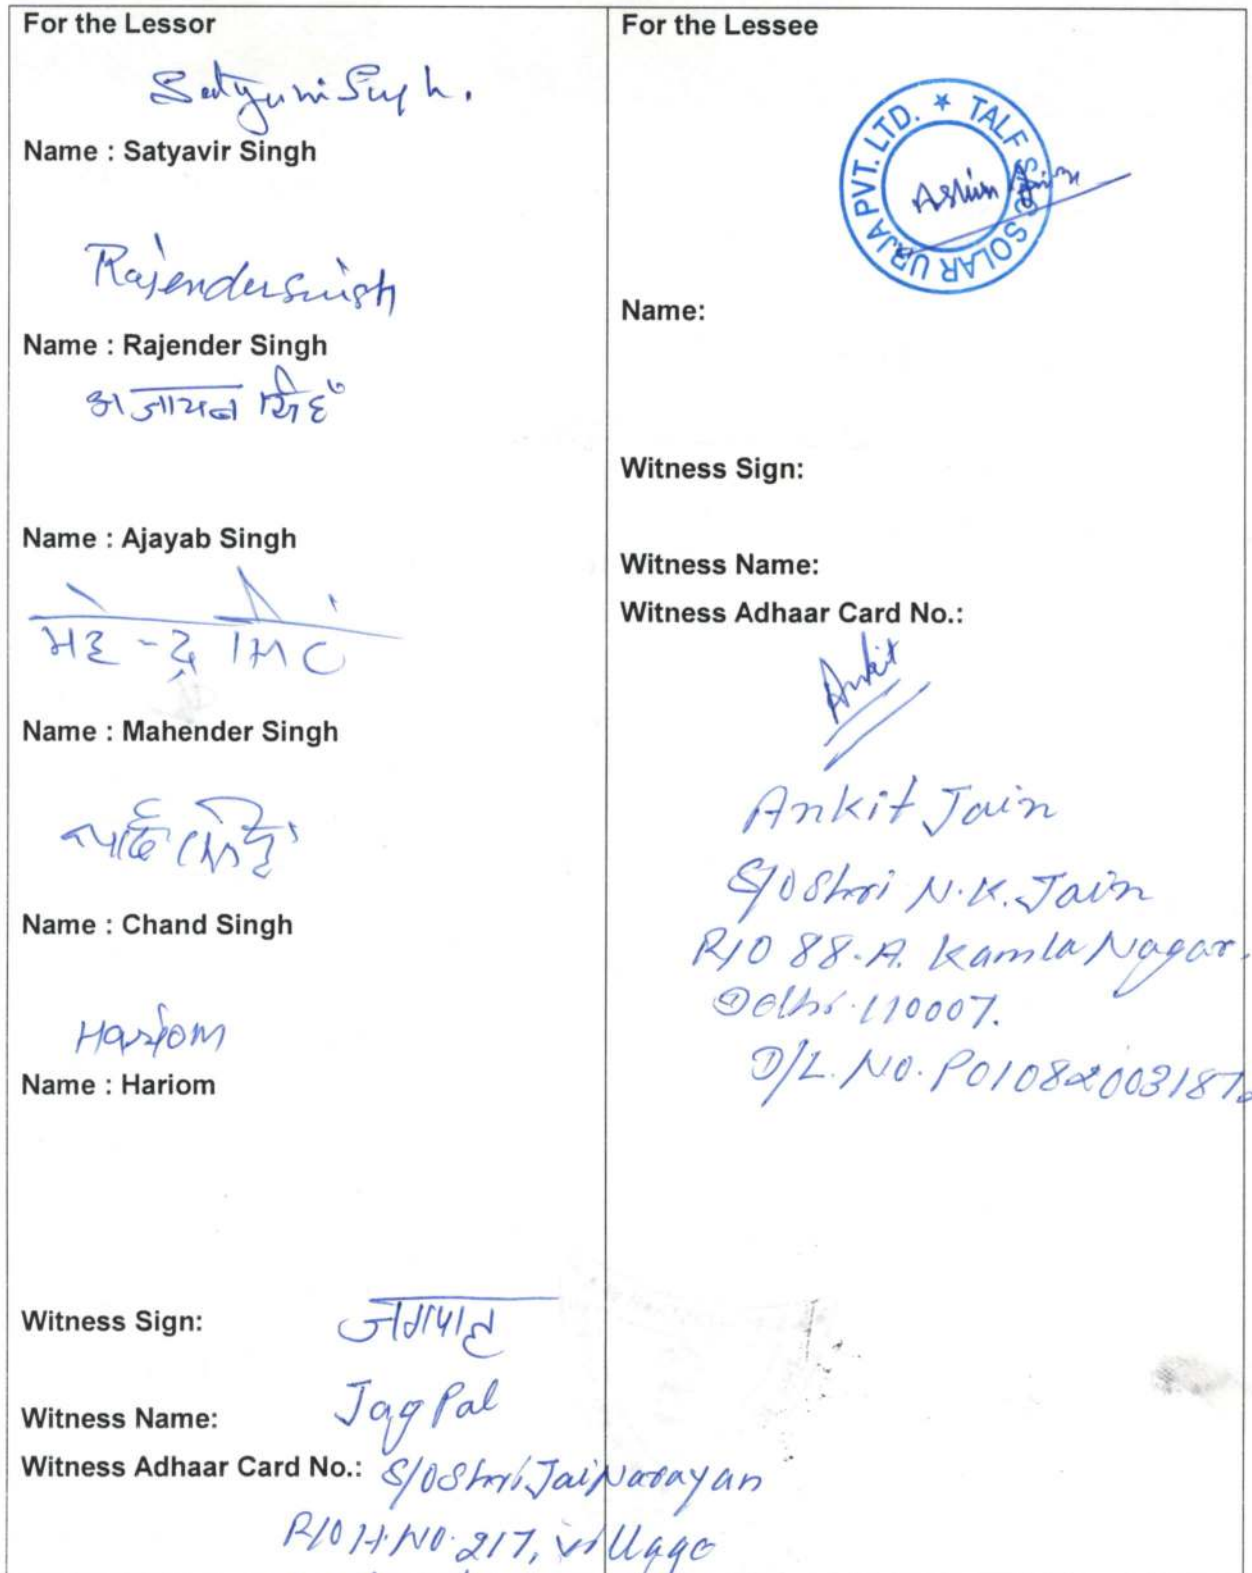 For the Lessor
Satyavir Singh.
Name : Satyavir Singh
Rajender Singh
Name : Rajender Singh
सिंह
Name : Ajayab Singh
Name : Mahender Singh
Name : Chand Singh
Hariom
Name : Hariom
Witness Sign:
जगपाल
Witness Name: Jag Pal
Witness Adhaar Card No.: S/O Shri Jai Narayan
R/O H.NO. 217, Village
For the Lessee
★ TALF SOLAR URJA PVT. LTD.
Name:
Witness Sign:
Witness Name:
Witness Adhaar Card No.:
Ankit
Ankit Jain
S/O Shri N.K. Jain
R/O 88-A. Kamla Nagar.
Delhi-110007.
D/L. NO.